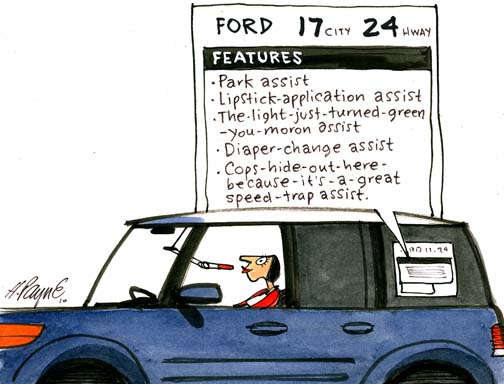 FORD 17 CITY 24 HWAY
FEATURES
· Park assist
· Lipstick-application assist
· The-light-just-turned-green
-you-moron assist
· Diaper-change assist
· Cops-hide-out-here-
because-it's-a-great
speed-trap assist.
17 24
A. Payne